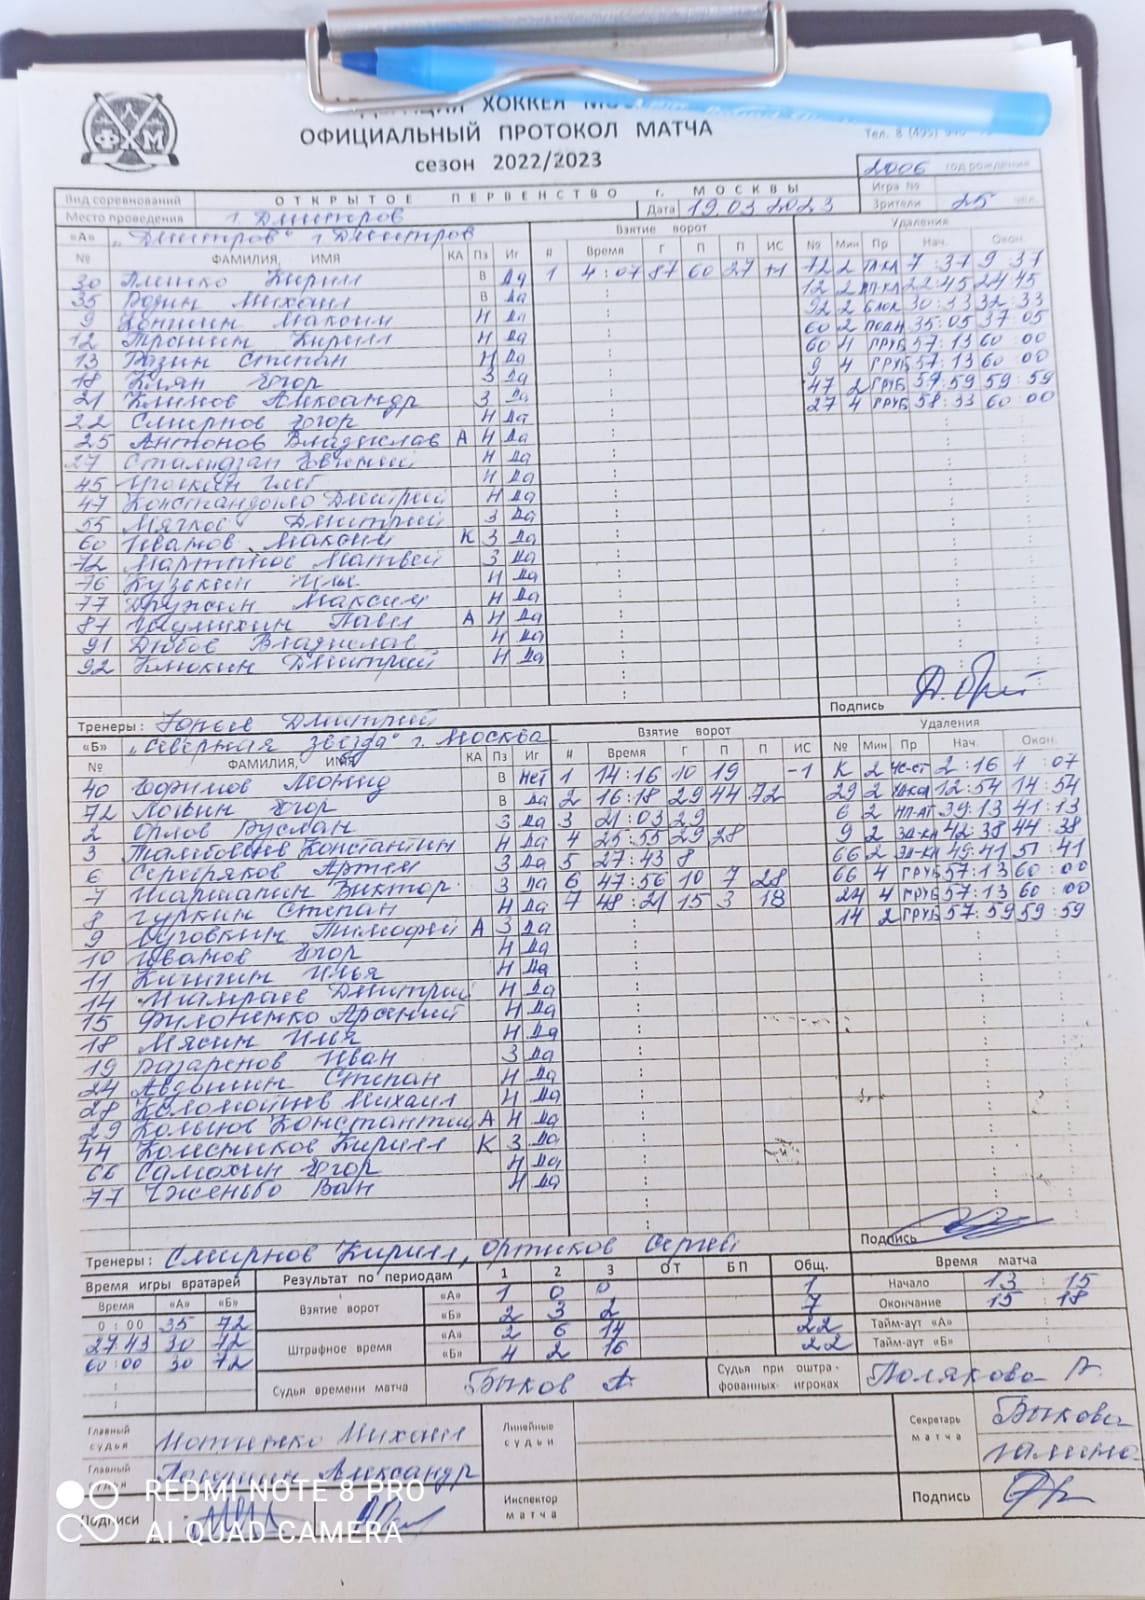 ХОККЕЯ
ОФИЦИАЛЬНЫЙ ПРОТОКОЛ МАТЧА
сезон 2022/2023
Тел. 8 (495)
2006 год рождения
Вид соревнований ОТКРЫТОЕ ПЕРВЕНСТВО г. МОСКВЫ Игра №
Место проведения г. Дмитров Дата 19.03.2023 Зрители 25 чел.
«А» "Дмитров" г. Дмитров Взятие ворот Удаления
№ ФАМИЛИЯ, ИМЯ КА Пз Иг # Время Г П П ИС № Мин Пр Нач. Окон.
30 Кирилл В Да 1 4:07 87 60 27 72 2 7:37 9:37
35 Родин Михаил В Да 12 2 22:45 24:45
9 Коншин Максим Н Да 92 2 БЛОК 30:33 32:33
12 Трошин Кирилл Н Да 60 2 ПОДН 35:05 37:05
13 Разин Степан Н Да 60 4 ГРУБ 57:13 60:00
18 Клян Егор З Да 9 4 ГРУБ 57:13 60:00
21 Климов Александр З Да 47 2 ГРУБ 59:59
22 Смирнов Егор Н Да 27 4 ГРУБ 58:33 60:00
25 Антонов Владислав А Н Да
27 Евгений Н Да
45 Глеб Н Да
47 Дмитрий Н Да
55 Мягков Дмитрий З Да
60 Иванов Максим К З Да
72 Мартинов Матвей З Да
76 Кузекин Илья Н Да
77 Дружин Максим Н Да
87 Павел А Н Да
91 Дюбов Владислав Н Да
92 Клюкин Дмитрий Н Да
Подпись
Тренеры: Дмитрий
«Б» "Северная звезда" г. Москва Взятие ворот Удаления
№ ФАМИЛИЯ, ИМЯ КА Пз Иг # Время Г П П ИС № Мин Пр Нач. Окон.
40 Ефимов Леонид В Нет 1 14:16 10 19 -1 К 2 2:16 4:07
72 Лонин Егор В Да 2 16:18 29 44 72 29 2 12:54 14:54
2 Орлов Руслан З Да 3 21:03 29 6 2 НП-АТ 39:13 41:13
3 Константин Н Да 4 25:55 29 28 9 2 42:38 44:38
6 Серебряков Артем З Да 5 27:43 8 66 2 49:41 51:41
7 Шаршапин Виктор З Да 6 47:56 10 7 28 66 4 ГРУБ 57:13 60:00
8 Гуркин Степан Н Да 7 48:21 15 3 18 24 4 ГРУБ 57:13 60:00
9 Тимофей А З Да 14 2 ГРУБ 57:59 59:59
10 Иванов Егор Н Да
11 Кишкин Илья Н Да
14 Дмитрий Н Да
15 Филоненко Арсений Н Да
18 Мясин Илья Н Да
19 Назаренов Иван З Да
24 Авдошин Степан Н Да
28 Коломойцев Михаил Н Да
29 Копылов Константин А Н Да
44 Колесников Кирилл К З Да
66 Самохин Егор Н Да
77 Чженьбо Ван Н Да
Подпись
Тренеры: Смирнов Кирилл, Ортиков Сергей
Время игры вратарей Результат по периодам 1 2 3 ОТ БП Общ. Время матча
Время «А» «Б» Взятие ворот «А» 1 0 0 1 Начало 13:15
0:00 35 72 «Б» 2 3 2 7 Окончание 15:18
27:43 30 72 Штрафное время «А» 2 6 14 22 Тайм-аут «А»
60:00 30 72 «Б» 4 2 16 22 Тайм-аут «Б»
Судья времени матча Быков А. Судья при оштрафованных игроках Полякова
Главный судья Михаил Линейные судьи Секретарь матча Быкова Галина
Главный судья Александр
Подписи Инспектор матча Подпись
REDMI NOTE 8 PRO
AI QUAD CAMERA